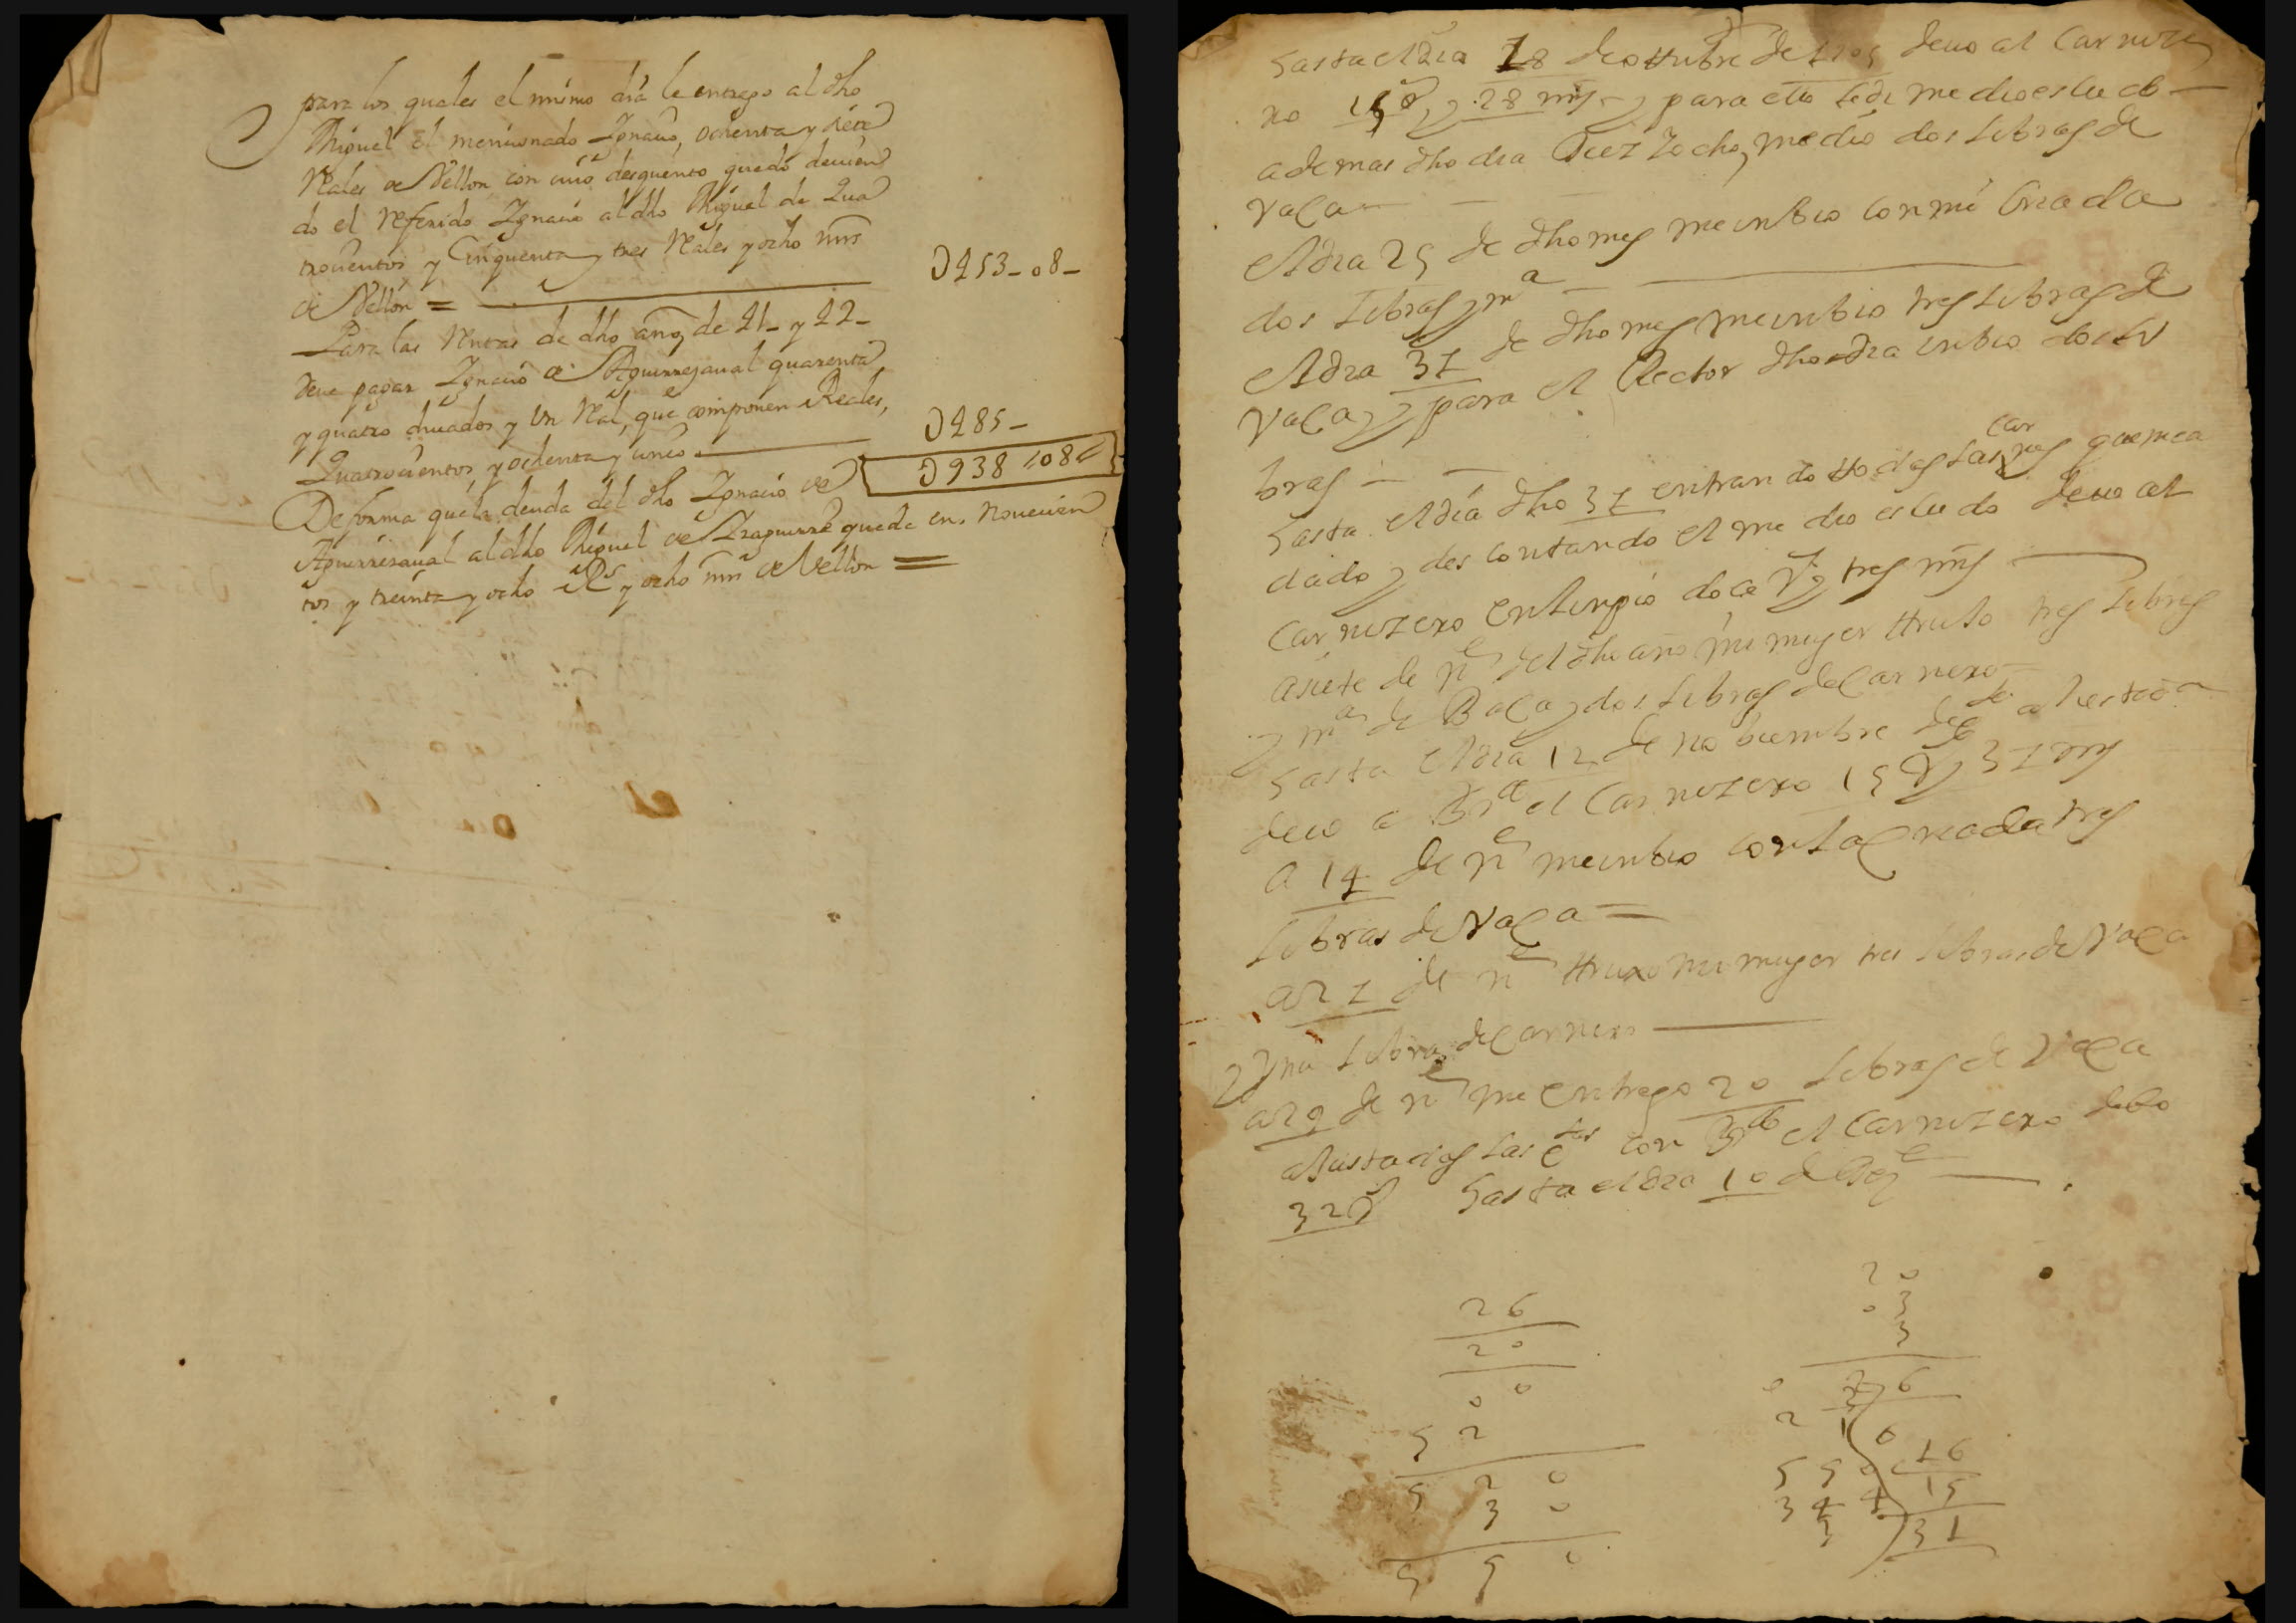 para los quales el mismo dia le entrego al dho
Miguel el mencionado Ignacio, ochenta y siete
Reales de Vellon con cuio desquento quedó devien
do el referido Ignacio al dho Miguel de Qua
trocientos y Cinquenta y tres Reales y ocho mrs
de Vellon = 0453-08-
Para las Rentas de dho año, de 21- y 22-
deve pagar Ignacio de Aguirrezaual quarenta
y quatro ducados y Un Real, que componen Reales,
Quatrocientos, y ochenta y cinco 0485-
0938 08
De forma que la deuda del dho Ignacio de
Aguirrezaual al dho Miguel de Yraguirre queda en, Novecien
tos y treinta y ocho Rs y ocho mrs de Vellon =
Hasta el dia 18 de ottubre de 1705 deuo al Carnize
ro 15 R y 28 mrs y para ello le di medio escudo
ademas dho dia Diez y ocho, me dio dos libras de
vaca
El dia 25 de dho mes me inbio con mi Criada
dos libras y ma
El dia 31 de dho mes me inbio tres libras de
vaca y para el Rector dho dia inbio dos li
bras
Hasta el día dho 31 entrando todas las carnes que me a
dado y descontando el medio escudo deuo al
Carnizero en limpio doce Rs y tres mrs
a siete de ne del dho año mi muger truxo tres libras
y ma de Baca y dos libras de Carnero
Hasta el dia 12 de nobiembre de
deuo a el Carnizero 15 R y 31 mrs
a 14 de ne me inbio con la criada tres
libras de vaca =
a 21 de ne truxo mi muger tres libras de vaca
y Una libra de Carnero
a 29 de ne me entrego 20 libras de Vaca
Ajustadas las ctas con el Carnizero debo
32 R Hasta el dia 10 de Dez e
26
20
0 0
5 2
5 2 0
3 0
5 5 0
20
0 3
3
2 6
2 1 6
5 5 0 16
3 4 4 15
3 31